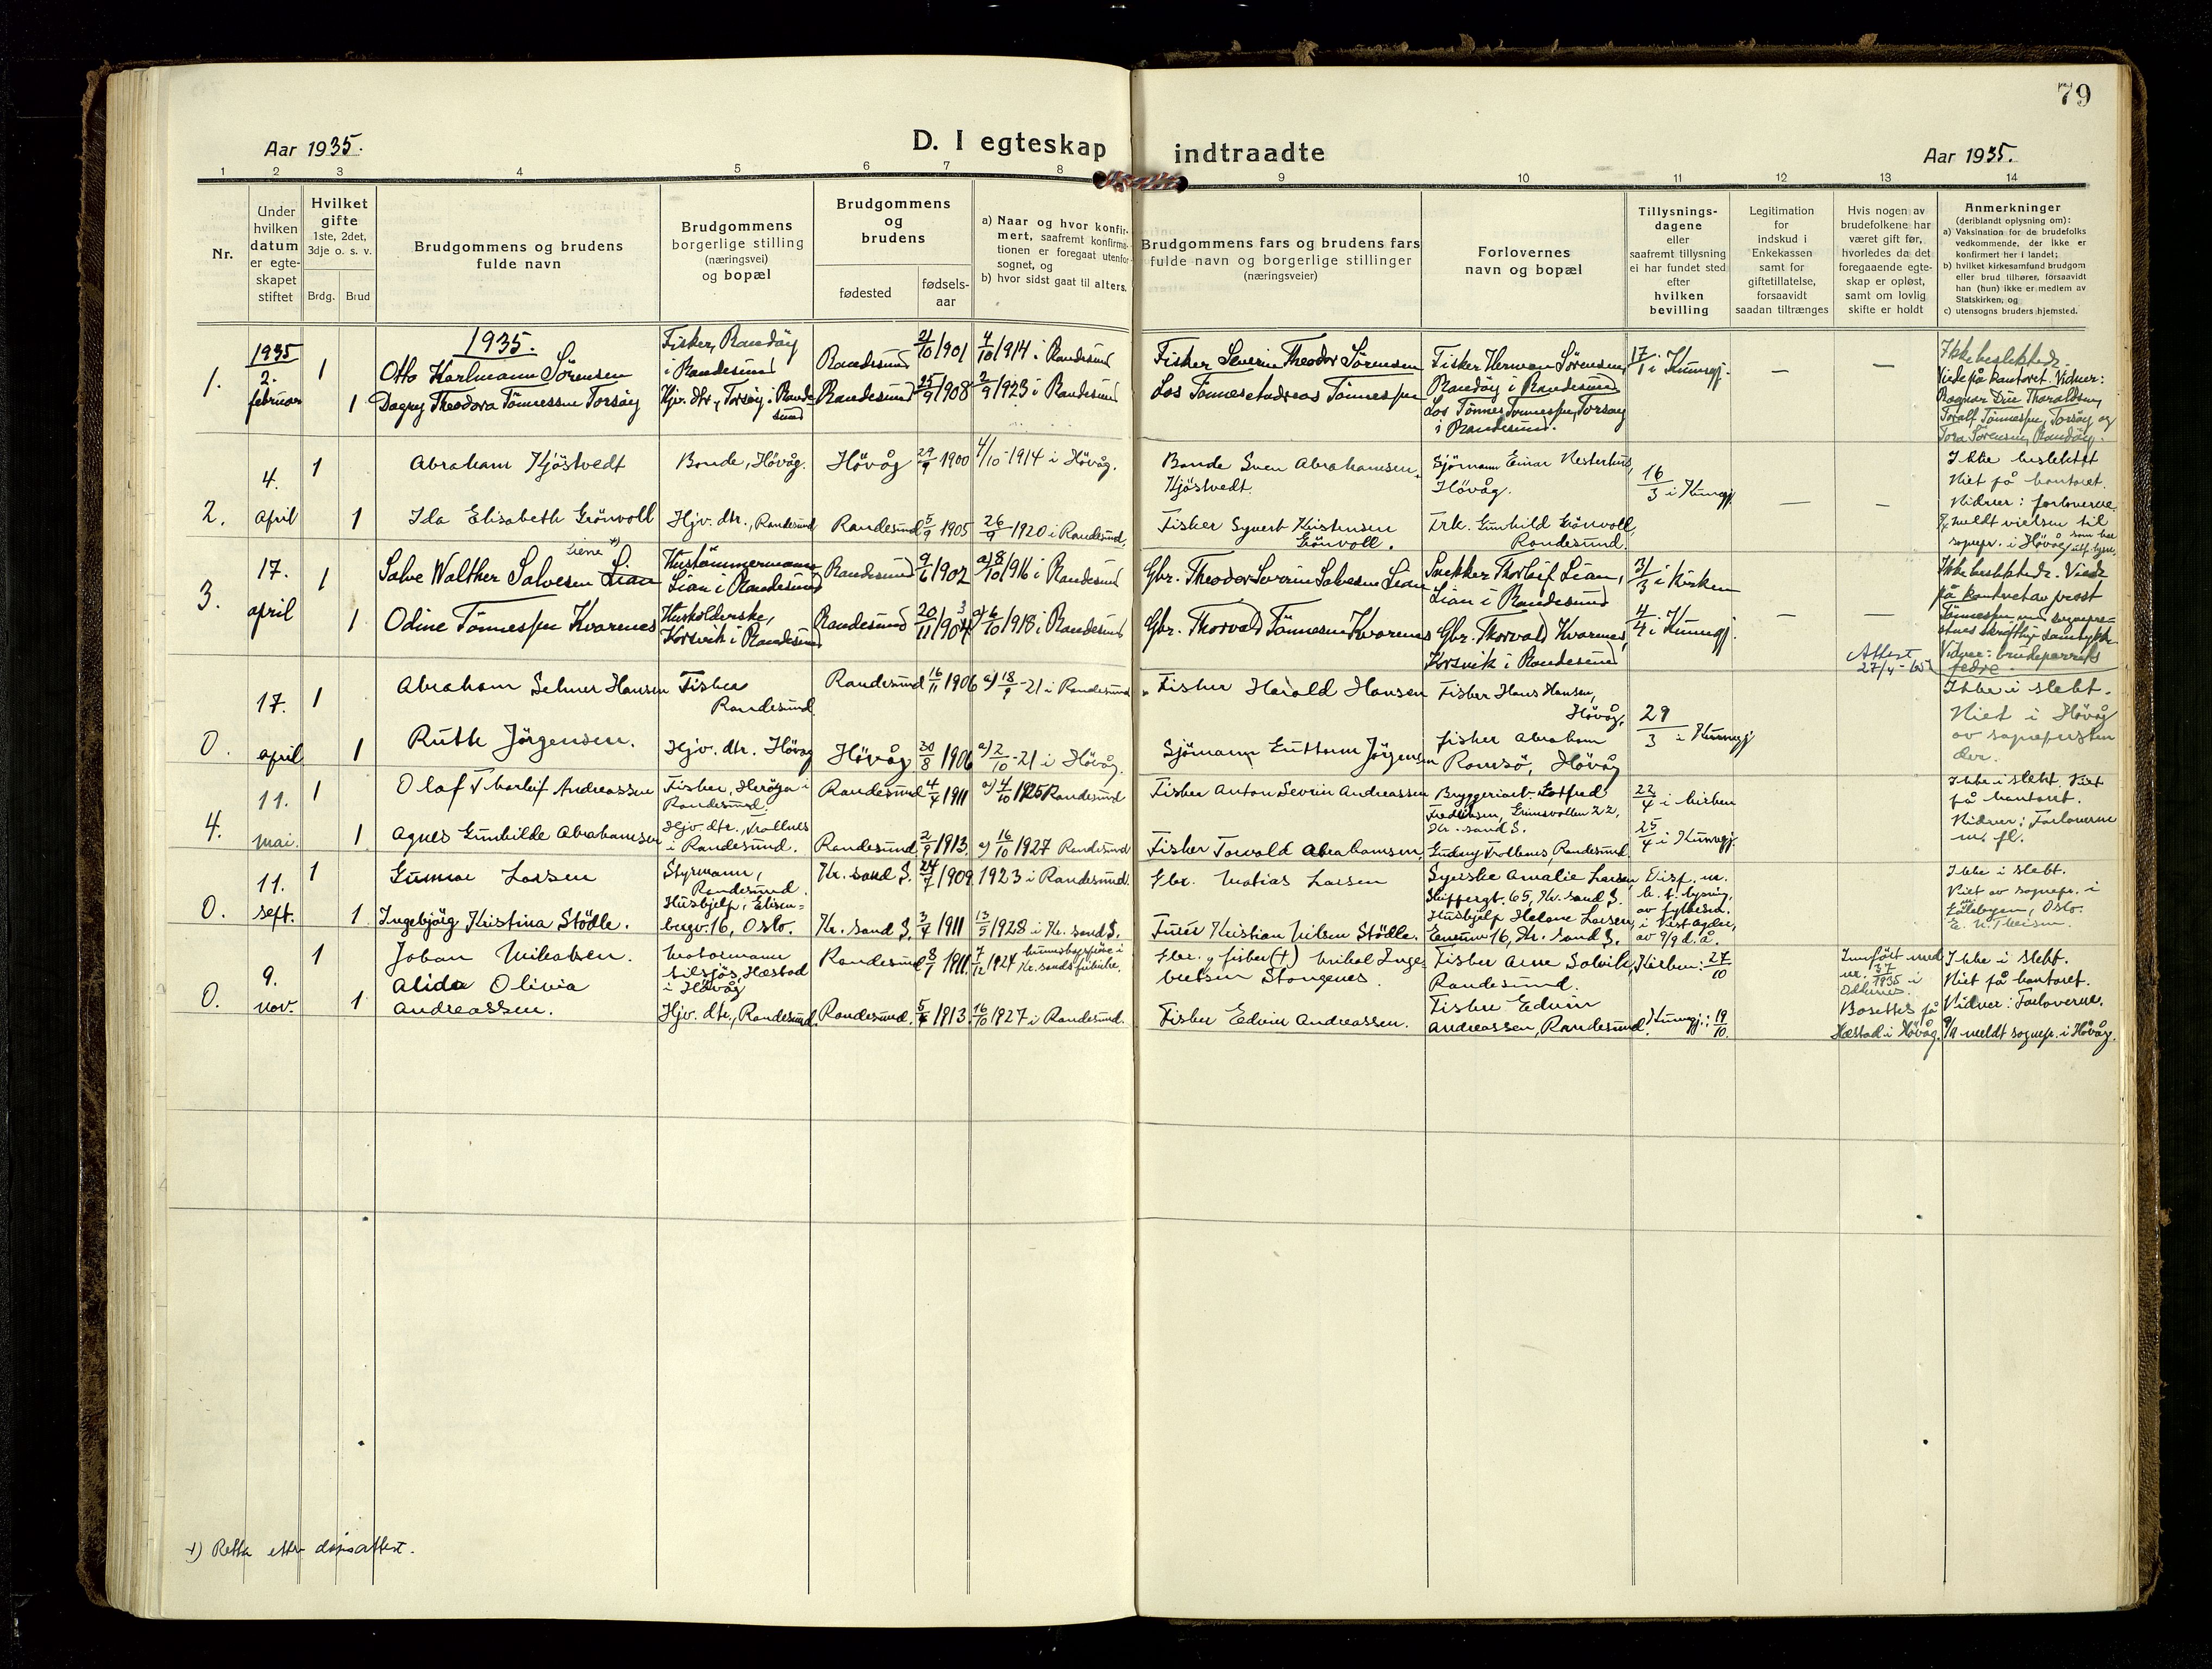 79
Aar 1935.
D. I egteskap indtraadte
Aar 1935.
1 2 3 4 5 6 7 8 9 10 11 12 13 14
Nr.
Under hvilken datum er egteskapet stiftet
Hvilket gifte
1ste, 2det, 3dje o. s. v.
Brdg. Brud
Brudgommens og brudens fulde navn
Brudgommens borgerlige stilling (næringsvei) og bopæl
Brudgommens og brudens
fødested
fødsels-aar
a) Naar og hvor konfirmert, saafremt konfirmationen er foregaat utenfor sognet, og
b) hvor sidst gaat til alters.
Brudgommens fars og brudens fars fulde navn og borgerlige stillinger (næringsveier)
Forlovernes navn og bopæl
Tillysningsdagene eller saafremt tillysning ei har fundet sted efter hvilken bevilling
Legitimation for indskud i Enkekassen samt for giftetillatelse, forsaavidt saadan tiltrænges
Hvis nogen av brudefolkene har været gift før, hvorledes da det foregaaende egteskap er opløst, samt om lovlig skifte er holdt
Anmerkninger
(deriblandt oplysning om):
a) Vaksination for de brudefolks vedkommende, der ikke er konfirmert her i landet;
b) hvilket kirkesamfund brudgom eller brud tilhører, forsaavidt han (hun) ikke er medlem av Statskirken, og
c) utensogns bruders hjemsted.
1935.
1935
1. 2. februar
1 Otto Karlmann Sörensen
Fisker, Randöy i Randesund
Randesund 21/10 1901 4/10 1914 i Randesund
Fisker Severin Theodor Sørensen
Fisker Herman Sørensen, Randöy i Randesund
17/1 i Kunngj. — —
Ikke beslektede. Viede på kontoret. Vidner: Ragnar Due Thoraldsen, Toralf Tönnessen, Torsöy og Tora Sörensen, Randöy.
1 Dagny Theodora Tönnessen Torsöy
Hjv. dtr., Torsöy i Randesund
Randesund 25/9 1908 2/9 1923 i Randesund
Los Tönnes Andreas Tönnessen
Los Tönnes Tönnessen, Torsøy i Randesund.
2. 4. april
1 Abraham Kjöstvedt
Bonde, Hövåg.
Hövåg 29/9 1900 4/10-1914 i Hövåg.
Bonde Sven Abrahamsen Kjöstvedt.
Sjömann Einar Nesterhus, Hövåg.
16/3 i Kunngj. — —
Ikke beslektet
Viet på kontoret.
Vidner: forloverne.
meldt vielsen til sognepr. i Hövåg som har utf. lysn.
1 Ida Elisabeth Grönvoll
Hjv. dtr., Randesund
Randesund 5/9 1905 26/9-1920 i Randesund.
Fisker Syvert Kristensen Grönvoll.
Frk. Gunhild Grönvoll, Randesund.
3. 17. april
1 Salve Walther Salvesen Lian
Liene +)
Hustömmermann Lian i Randesund
Randesund 9/6 1902 a) 8/10 1916 i Randesund
Gbr. Theodor Severin Salvesen Lian
Snekker Thorleif Lian, Lian i Randesund
31/3 i Kirken
4/4 i Kunngj. — —
Ikke beslektede. Viede på kontoret av prost Tönnessen med sogneprestens skriftlige samtykke. Vidner: brudeparrets fedre.
1 Odine Tönnessen Kvarenes
Husholderske, Korsvik i Randesund
Randesund 20/11 1904 3 a) 6/10 1918 i Randesund
Gbr. Thorvald Tönnesen Kvarenes
Gbr. Thorvald Kvarenes, Korsvik i Randesund
Attest 27/4-65
0. 17. april
1 Abraham Selmer Hansen
Fisker Randesund.
Randesund 16/11 1906 a) 18/9-21 i Randesund
Fisker Harald Hansen
Fisker Hans Hansen, Hövåg,
29/3 i Kunngj
Ikke i slekt.
Viet i Hövåg av sognepresten der.
1 Ruth Jörgensen.
Hjv. dtr. Hövåg
Hövåg 30/8 1906 a) 2/10-21 i Hövåg.
Sjömann Guttorm Jörgensen
fisker Abraham Ramsö, Hövåg
4. 11. mai.
1 Olaf Thorleif Andreassen
Fisker, Heröya i Randesund.
Randesund 4/4 1911 a) 4/10 1925 Randesund
Fisker Anton Sevrin Andreassen
Bryggeriarb. Gotfred Fredriksen, Grimsvollen 22, Kr.sand S.
22/4 i kirken
25/4 i Kunngj.
Ikke i slekt. Viet på kontoret. Vidner: Forloverne m. fl.
1 Agnes Gunhilde Abrahamsen
Hjv. dtr., Trollnes i Randesund.
Randesund 2/9 1913. a) 16/10 1927 Randesund
Fisker Torvald Abrahamsen.
Gudny Trollenes, Randesund.
0. 11. sept.
1 Gunnar Larsen
Styrmann, Randesund.
Kr. sand S. 24/7 1909. 1923 i Randesund.
Gbr. Matias Larsen
Syerske Amalie Larsen Skippergt. 65, Kr. sand S.
Disp. m. h. t. lysning av fylkesm. i Vest Agder, av 9/9 d. å.
Ikke i slekt.
Viet av sognepr. i Oslo.
1 Ingebjörg Kristina Stödle.
Husbjelp, Elisenbergv. 16, Oslo.
Kr. sand S. 3/4 1911 13/5 1928 i Kr. sand S.
Kristian Nilsen Stödle.
Husbjelp Helene Larsen, 16, Kr. sand S.
0. 9. nov.
1 Johan Mikalsen.
Motormann tilsjøs, Hæstad i Hövåg
Randesund 8/1 1911. 7/12 1924 Kr.sands frikirke.
Gbr. y fisker (+) Mikal Ingebretsen Stangenes.
Fisker Arne Solvik, Randesund.
Kirken: 27/10
Innført med nr. 37 1935 i Oddernes.
Ikke i slekt.
Viet på kontoret.
Vidner: Forloverne.
1 Alida Olivia Andreassen.
Hjv. dtr., Randesund.
Randesund. 5/4 1913. 16/10 1927 i Randesund.
Fisker Edvin Andreassen.
Fisker Edvin Andreassen, Randesund.
Kunngj.: 19/10.
Bosettes på Hæstad i Hövåg.
9/11 meldt sognepr. i Hövåg.
+) Rettet etter dåpsattest.